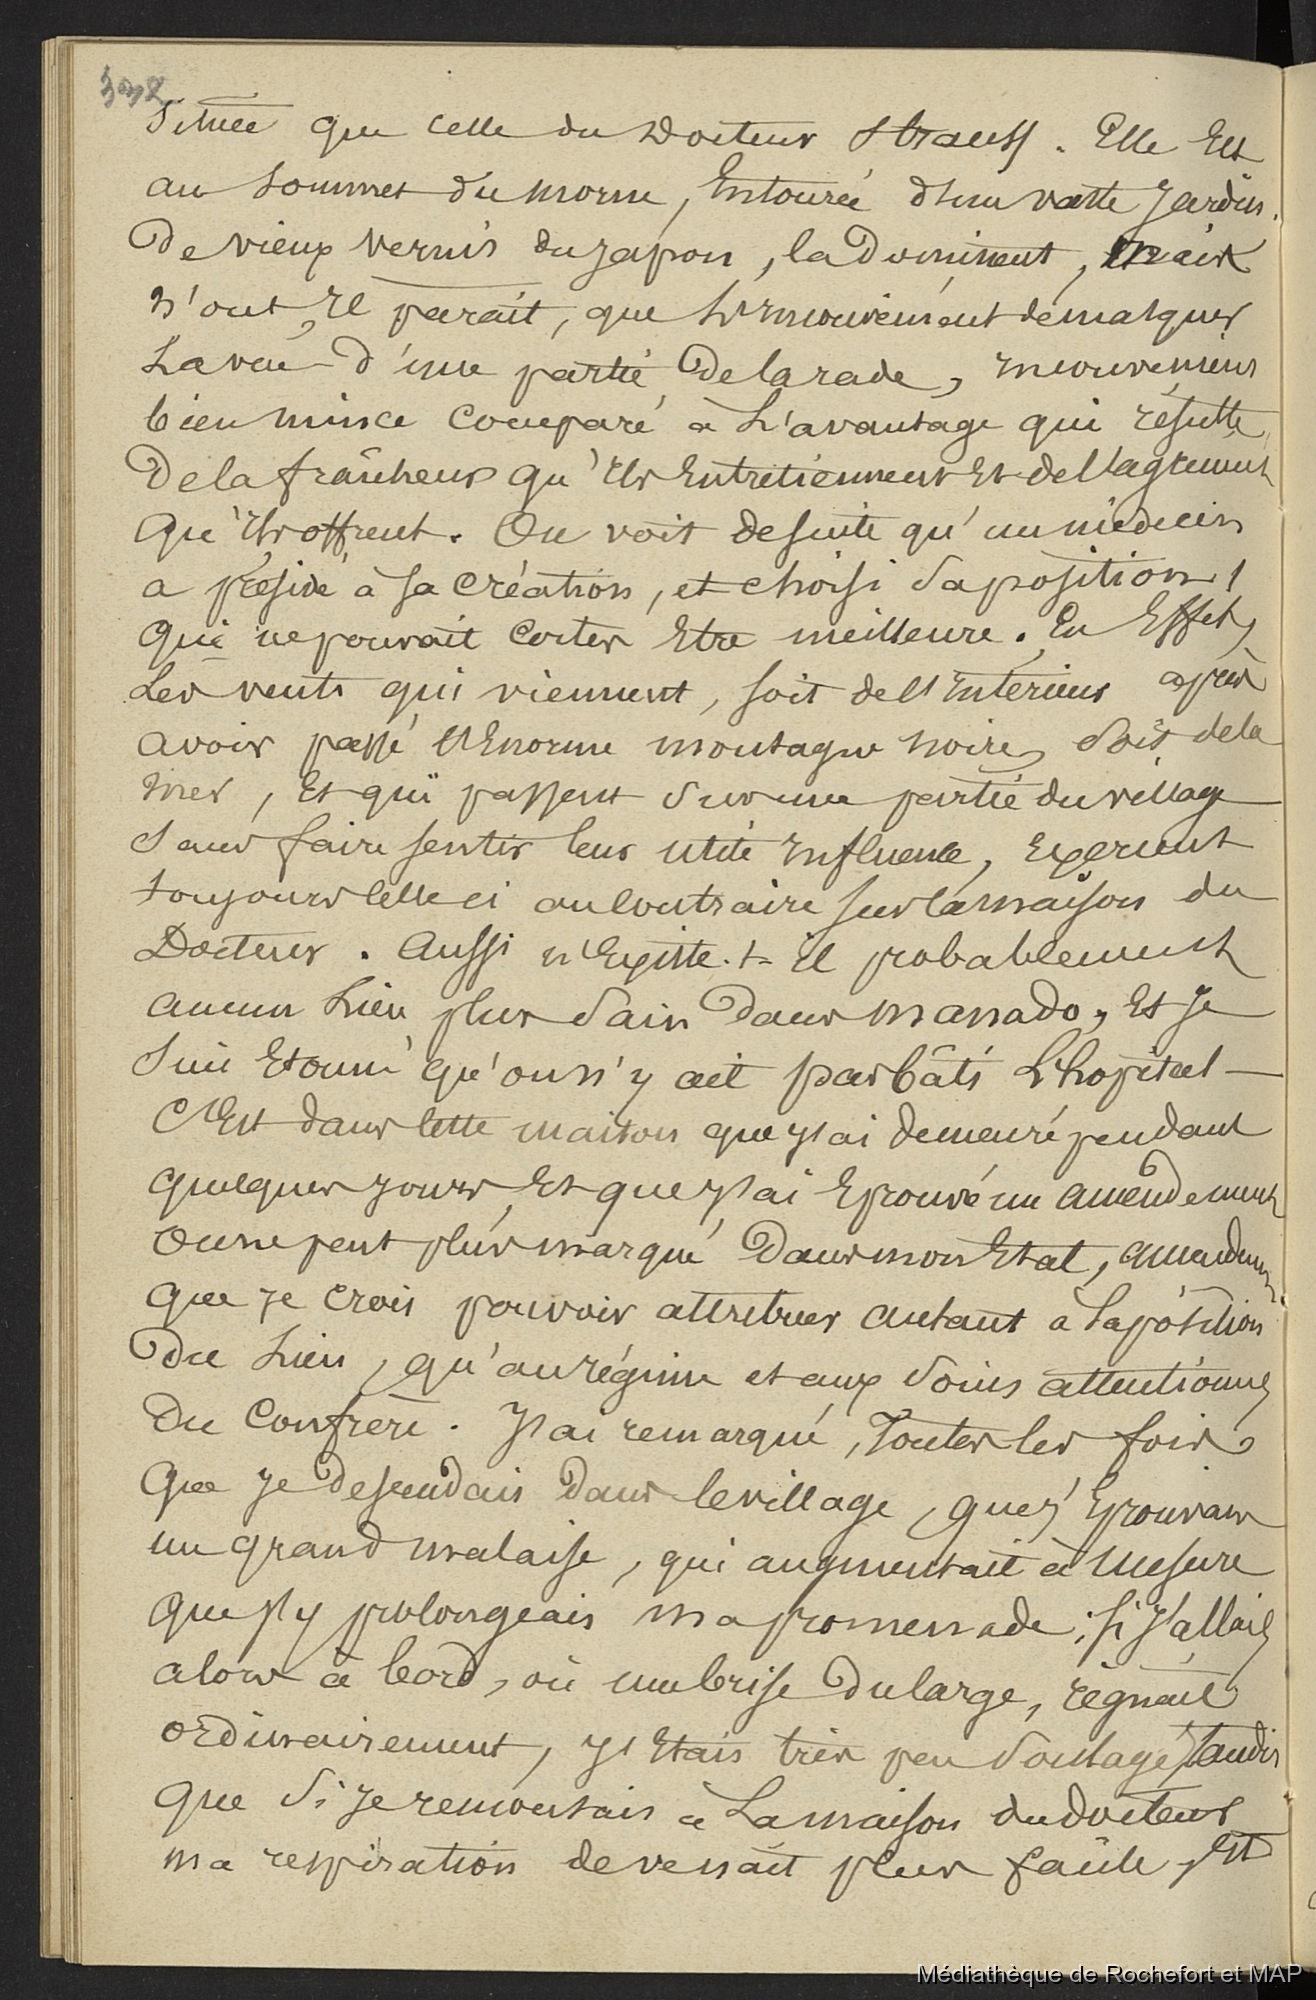 332
située que celle du Docteur Strauss. Elle est
au sommet du morne, entourée d'un vaste jardin.
De vieux vernis du japon, la dominent, mais
n'ont, il parait, que l'inconvénient de masquer
la vue d'une partie de la rade,
bien mince comparé à l'avantage qui résulte
de la fraîcheur qu'ils entretiennent et de l'agrément
qu'ils offrent. On voit de suite qu'un médecin
a présidé à sa création, et choisi sa position,
qui ne pouvait certes être meilleure. En effet,
les vents qui viennent, soit de l'intérieur après
avoir passé l'énorme montagne noire, soit de la
mer, et qui passent sur une partie du village
sans faire sentir leur utile influence, exercent
toujours celle ci au contraire sur la maison du
Docteur. Aussi n'existe-t-il probablement
aucun lieu plus sain dans manado, et je
suis étonné qu'on n'y ait pas bâti l'hopital —
C'est dans cette maison que j'ai demeuré pendant
quelques jours, et que j'ai éprouvé un amendement
on ne peut plus marqué dans mon état, amendement
que je crois pouvoir attribuer autant à la position
du lieu, qu'au régime et aux soins attentionnés
du confrère. J'ai remarqué, toutes les fois
que je descendais dans le village, que j'éprouvais
un grand malaise, qui augmentait à mesure
que j'y prolongeais ma promenade; si j'allais
alors à bord, où une brise du large, régnait
ordinairement, j'étais très peu soulagé, tandis
que si je remontais à la maison du docteur
ma respiration devenait plus facile, et
Médiathèque de Rochefort et MAP